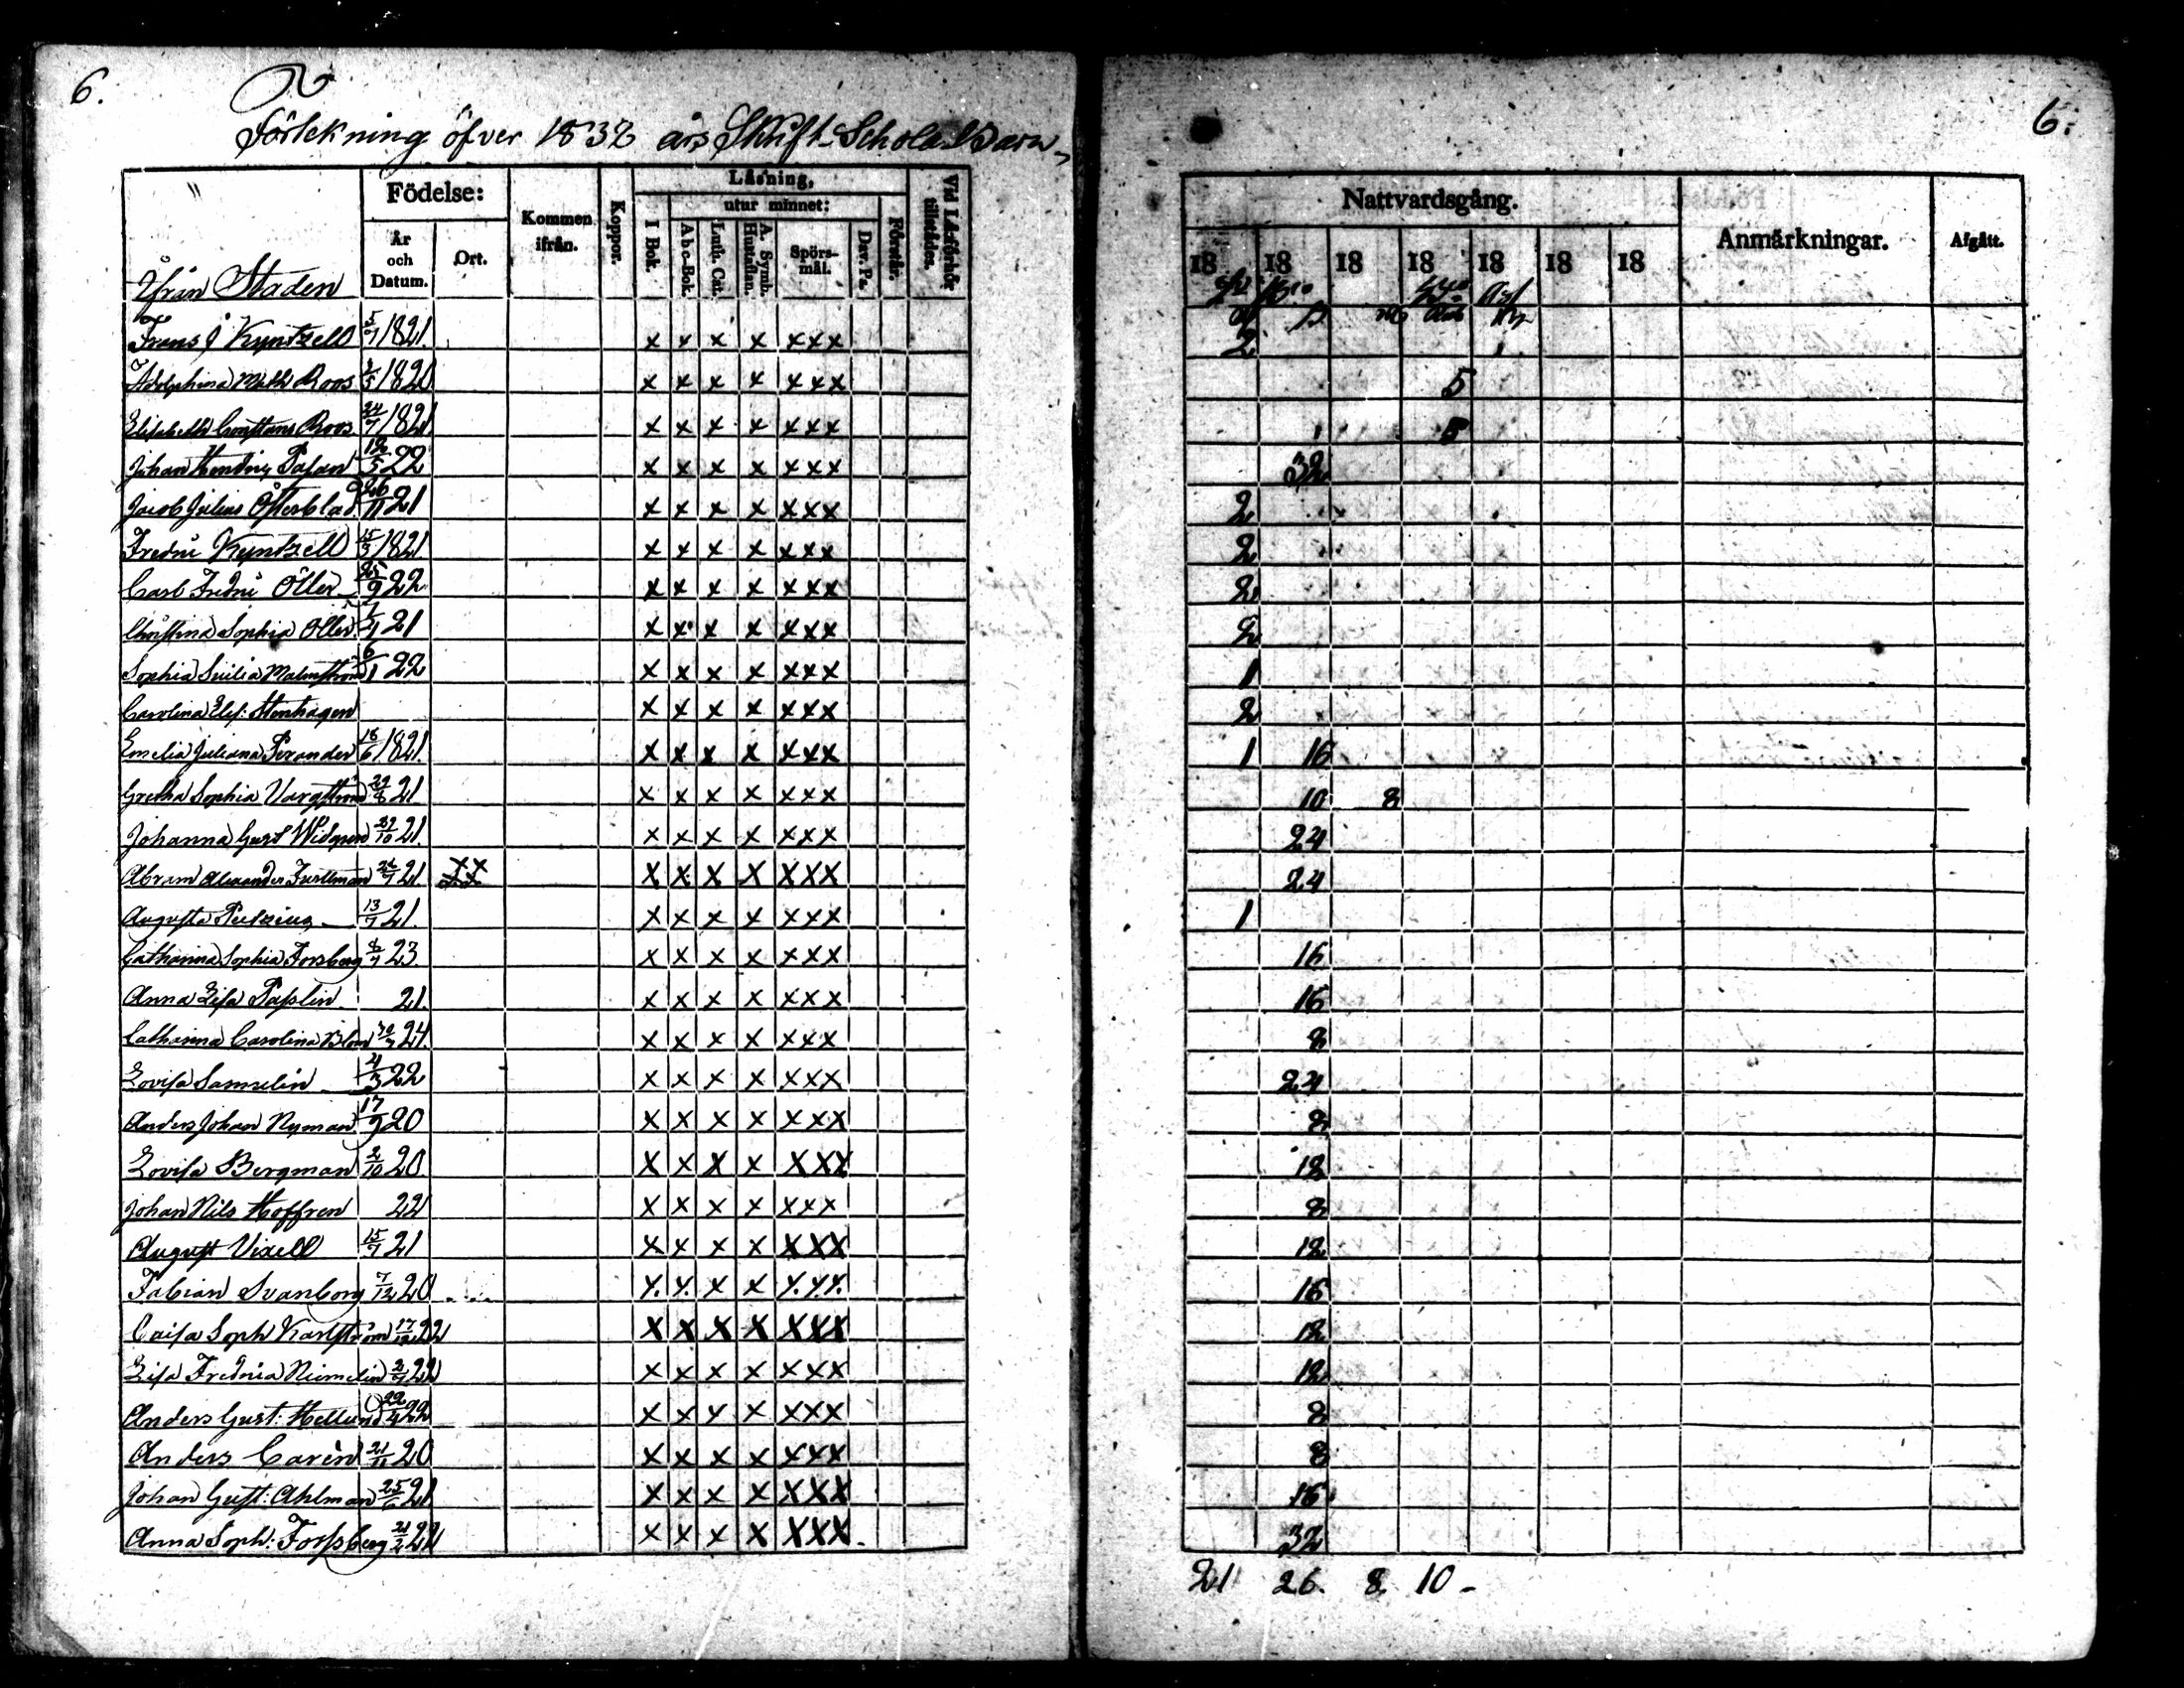 6.
Förtekning öfver 1832 års Skrift-Schole-Barn
Födelse:
År och Datum.
Ort.
Kommen ifrån.
Koppor.
Läsning,
utur minnet:
I Bok.
Abc-Bok.
Luth. Cat.
A. Symb. Hustaflan.
Spörs-mål.
Dav. Ps.
Förstår.
Vid Läsförhör tillstädes.
Ifrån Staden
Frans J Kyntzell 5/7 1821. x x x x xxx
Adolphina Math Roos 1820 x x x x xxx
Elisabeth Constans Roos 24/7 1821 x x x x xxx
Johan Henric 12/5 22 x x x x xxx
Jacob Julius Österblad 26/11 21 x x x x xxx
Fredric Kyntzell 15/3 1821 x x x x xxx
Carl Fredric Öller 25/9 22 x x x x xxx
Christina Sophia Öller 21 x x x x xxx
Sophia Malmström 6/1 22 x x x x xxx
Carolina Elis: Stenhagen x x x x xxx
Emelia Juliana 18/6 1821. x x x x xxx
Gretha Sophia Vargström 21 x x x x xxx
Johanna Gust Widgren 21. x x x x xxx
Abram Alexander 21. xx x x x x xxx
Augusta 13/7 21. x x x x xxx
Catharina Sophia Forsberg 23 x x x x xxx
Anna Lisa 21. x x x x xxx
Catharina Carolina x x x x xxx
Lovisa Samselin 4/3 22 x x x x xxx
Anders Johan Nyman 17/9 20 x x x x xxx
Lovisa Bergman 2/10 20 x x x x xxx
Johan Nils Hoffren 22 x x x x xxx
August Vixell 15/7 21 x x x x xxx
Fabian Svanborg 7/12 20 x x x x xxx
Caisa Soph Karlström 17/12 22 x x x x xxx
Lisa Fredrica Niemelin 22 x x x x xxx
Anders Gust: Hellund 22/4 22 x x x x xxx
Anders Carén 21/11 20 x x x x xxx
Johan Gust: Ahlman 25/6 21 x x x x xxx
Anna Soph: Forssberg 21/2 22 x x x x xxx
6:
Nattvardsgång.
Anmärkningar.
Afgått.
18 18 18 18 18 18 18
2
5
5
32
2
2
2
2
1
2
1 16
10 8
24
24
1
16
16
8
24
8
12
8
12
16
12
12
8
8
16
32
21 26. 8 10 -